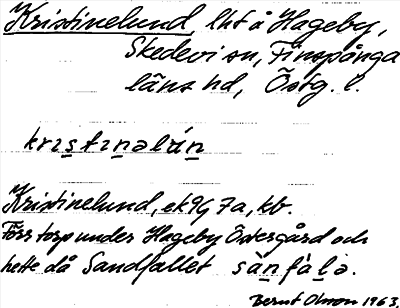 Kristinelund, lht å Hageby,
Skedevi sn, Finspånga
läns hd, Östg. l.
krɪs̱tɪṉəlúṉ
Kristinelund, ek 9G 7a, kb.
Förr torp under Hageby Östergård och
hette då Sandfallet sàṉfàḻə.
Bernt Olsson 1963.